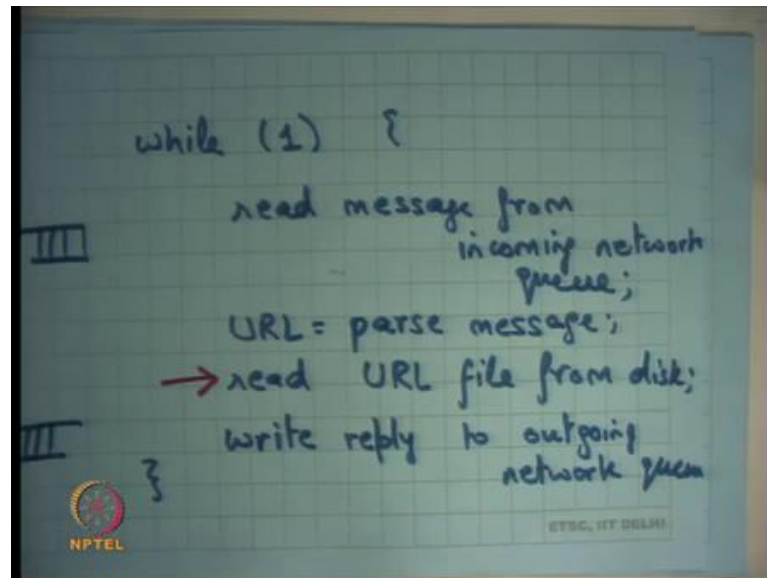 while (1) {
read message from
incoming network
queue;
URL = parse message;
read URL file from disk;
write reply to outgoing
network queu
}
NPTEL
ETSC, IIT DELHI